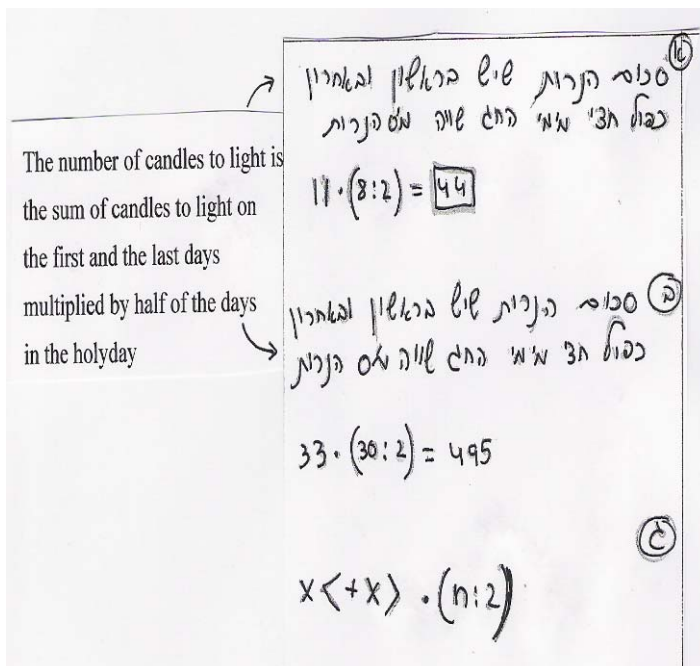 The number of candles to light is
the sum of candles to light on
the first and the last days
multiplied by half of the days
in the holyday
א
סכום הנרות שיש בראשון ובאחרון
כפול חצי מימי החג שווה מס הנרות
11·(8:2) = 44
ב
סכום הנרות שיש בראשון ובאחרון
כפול חצי מימי החג שווה מס הנרות
33·(30:2) = 495
ג
x<+x> ·(n:2)